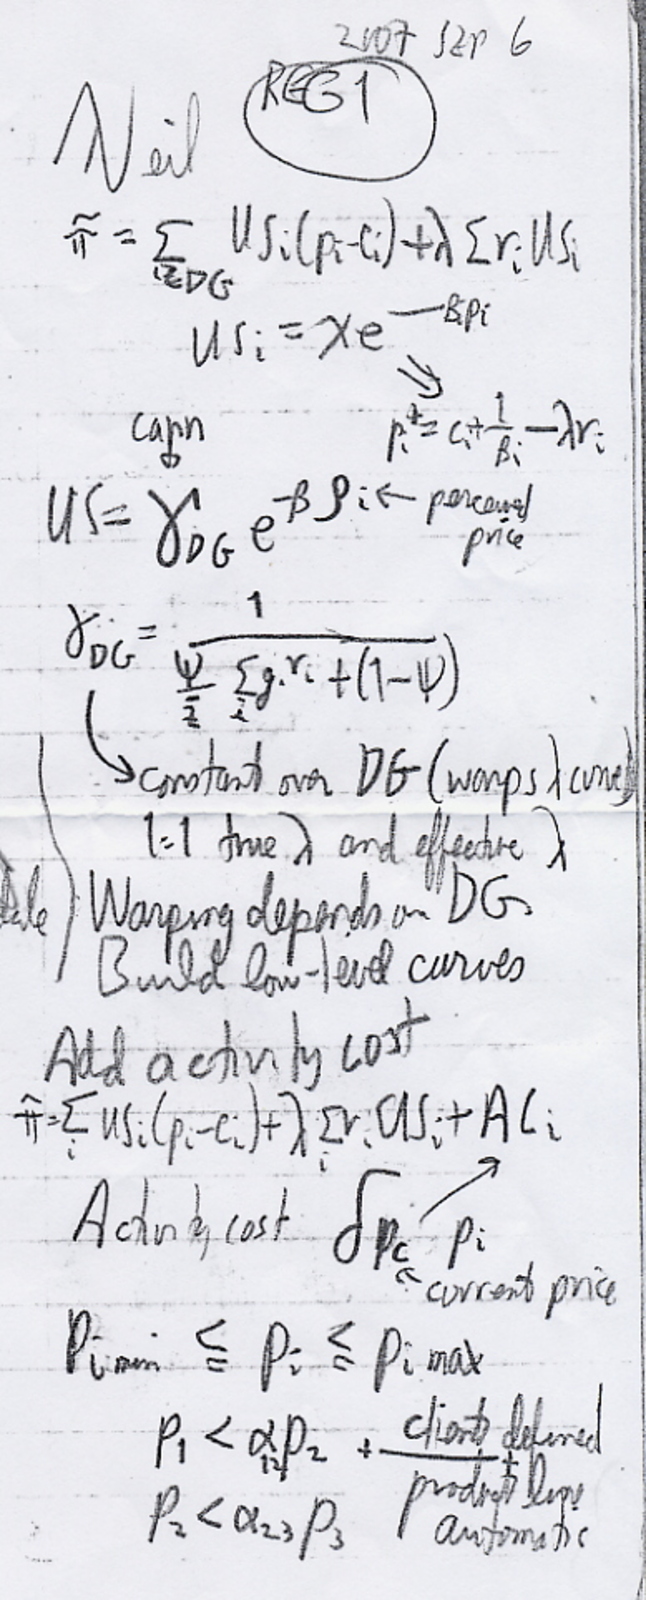 2007 SEP 6
REG1
Neil
π̃ = Σ_{i∈DG} USi(pi-ci)+λ Σ ri USi
USi = γe^{-βipi}
pi* = ci + 1/βi - λri
capn
US = γ_DG e^{-βρi} ← perceived
price
γ_DG = 1 / (Ψ/z Σ_i gi ri + (1-Ψ))
constant over DG (warps λ curve)
1=1 true λ and effective λ
Warping depends on DG.
Build low-level curves
Add activity cost
π̃ = Σ_i USi(pi-ci)+λ Σ_i ri USi + ACi
Activity cost δ pc pi
current price
Pi min ≦ Pi ≦ Pi max
P1 < α12 P2 + client defined
product line
P2 < α23 P3 automatic